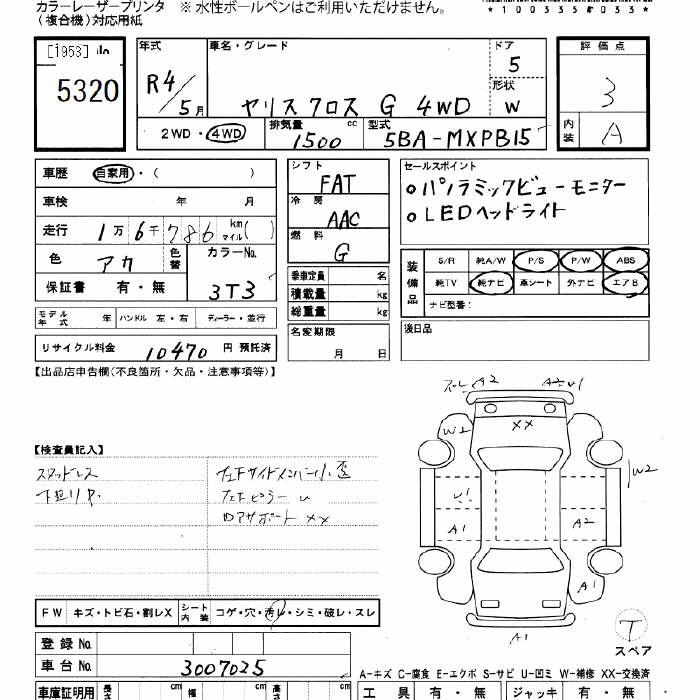 カラーレーザープリンタ ※ 水性ボールペンはご利用いただけません。
(複合機)対応用紙
*100335#033*
[1953]
5320
年式
R4/5月
車名・グレード
ヤリスクロス G 4WD
ドア
5
形状
W
評価点
3
内装
A
2WD・4WD
排気量
1500 cc
型式
5BA-MXPB15
車歴 自家用・( )
車検 年 月
走行 1万6千786 km マイル( )
色 アカ
色替
カラーNo.
3T3
保証書 有・無
シフト
FAT
冷房
AAC
燃料
G
乗車定員 名
積載量 kg
総重量 kg
名変期限
月 日
セールスポイント
○パノラミックビューモニター
○LEDヘッドライト
装備品
S/R 純A/W P/S P/W ABS
純TV 純ナビ 革シート 外ナビ エアB
ナビ型番:
後日品
モデル年式 年 ハンドル 左・右 ディーラー・並行
リサイクル料金 10470 円 預託済
【出品店申告欄(不良箇所・欠品・注意事項等)】
【検査員記入】
スタッドレス
下廻りサ
フェードサイドメンバー小歪
フェードピラー U
ロアサポート XX
A2
XX
W2
W2
U1
A1
A2
A1
A1
T
スペア
FW キズ・トビ石・割レX シート内装 コゲ・穴・汚レ・シミ・破レ・スレ
登録No.
車台No. 3007025
A-キズ C-腐食 E-エクボ S-サビ U-凹ミ W-補修 XX-交換済
車庫証明用 長さ cm 幅 cm 高さ cm
工具 有・無 ジャッキ 有・無